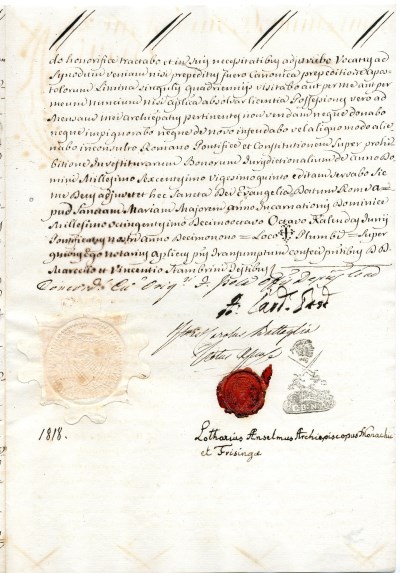 do honorifice tractabo et in suis necessitatibus adjuvabo Vocatus ad
Synodum veniam nisi prepeditus fuero Canonica prepeditione Apos-
tolorum Limina singulis quadrienniis visitabo aut per me aut per
meum Nuncium nisi aplica absolvar licentia Possessiones vero ad
Mensam mei archiepatus pertinentes non vendam neque donabo
neque impignorabo neque de novo infeudabo vel aliquo modo alie-
nabo inconsulto Romano Pontifice et Constitutionem super prohi-
bitione Investiturarum Bonorum Jurisdictionalium de anno Do-
mini Millesimo Sexcentesimo Vigesimoquinto editam servabo Sic
me Deus adjuvet et hec Sancta Dei Evangelia Datum Rome a-
pud Sanctam Mariam Majorem Anno Incarnationis Dominice
Millesimo octingentesimo Decimooctavo Octavo Kalendas Junii
Pontificatus nostri anno Decimonono = Loco Plumbi = Super
quibus Ego notarius aplicus pns Transumptum confeci pntibus DD.
Marcello et Vincentio Stambrini Testibus
Concordat cum
Card.
Carolus Battaglia
Notus
1818.
Lotharius Anselmus Archiepiscopus Monachii
et Frisingæ